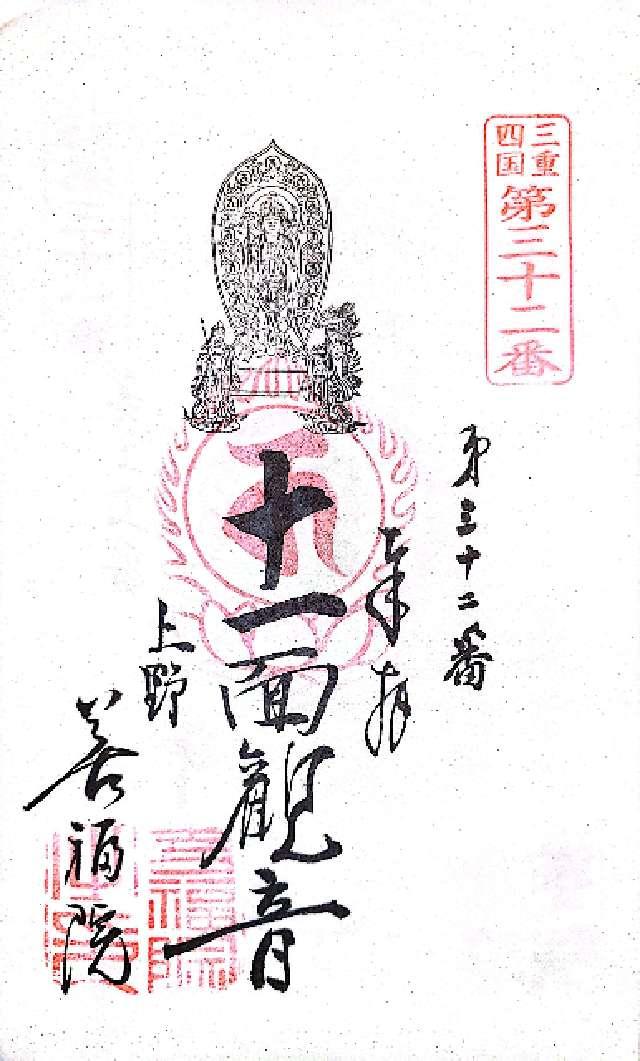 三重
四国
第三十二番
第三十二番
奉拝
十一面観音
上野
善福院